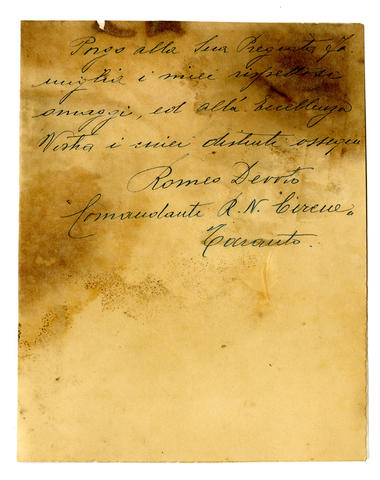 Porgo alla Sua Pregiata fa
miglia i miei rispettosi
omaggi, ed all'Eccellenza
Vostra i miei distinti ossequi
Romeo Devoto
"Comandante R. N. Cirene"
Taranto.